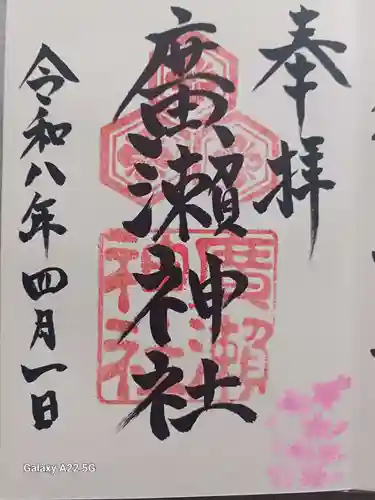 奉拝
廣瀬神社
廣瀬神社
令和八年四月一日
Galaxy A22 5G